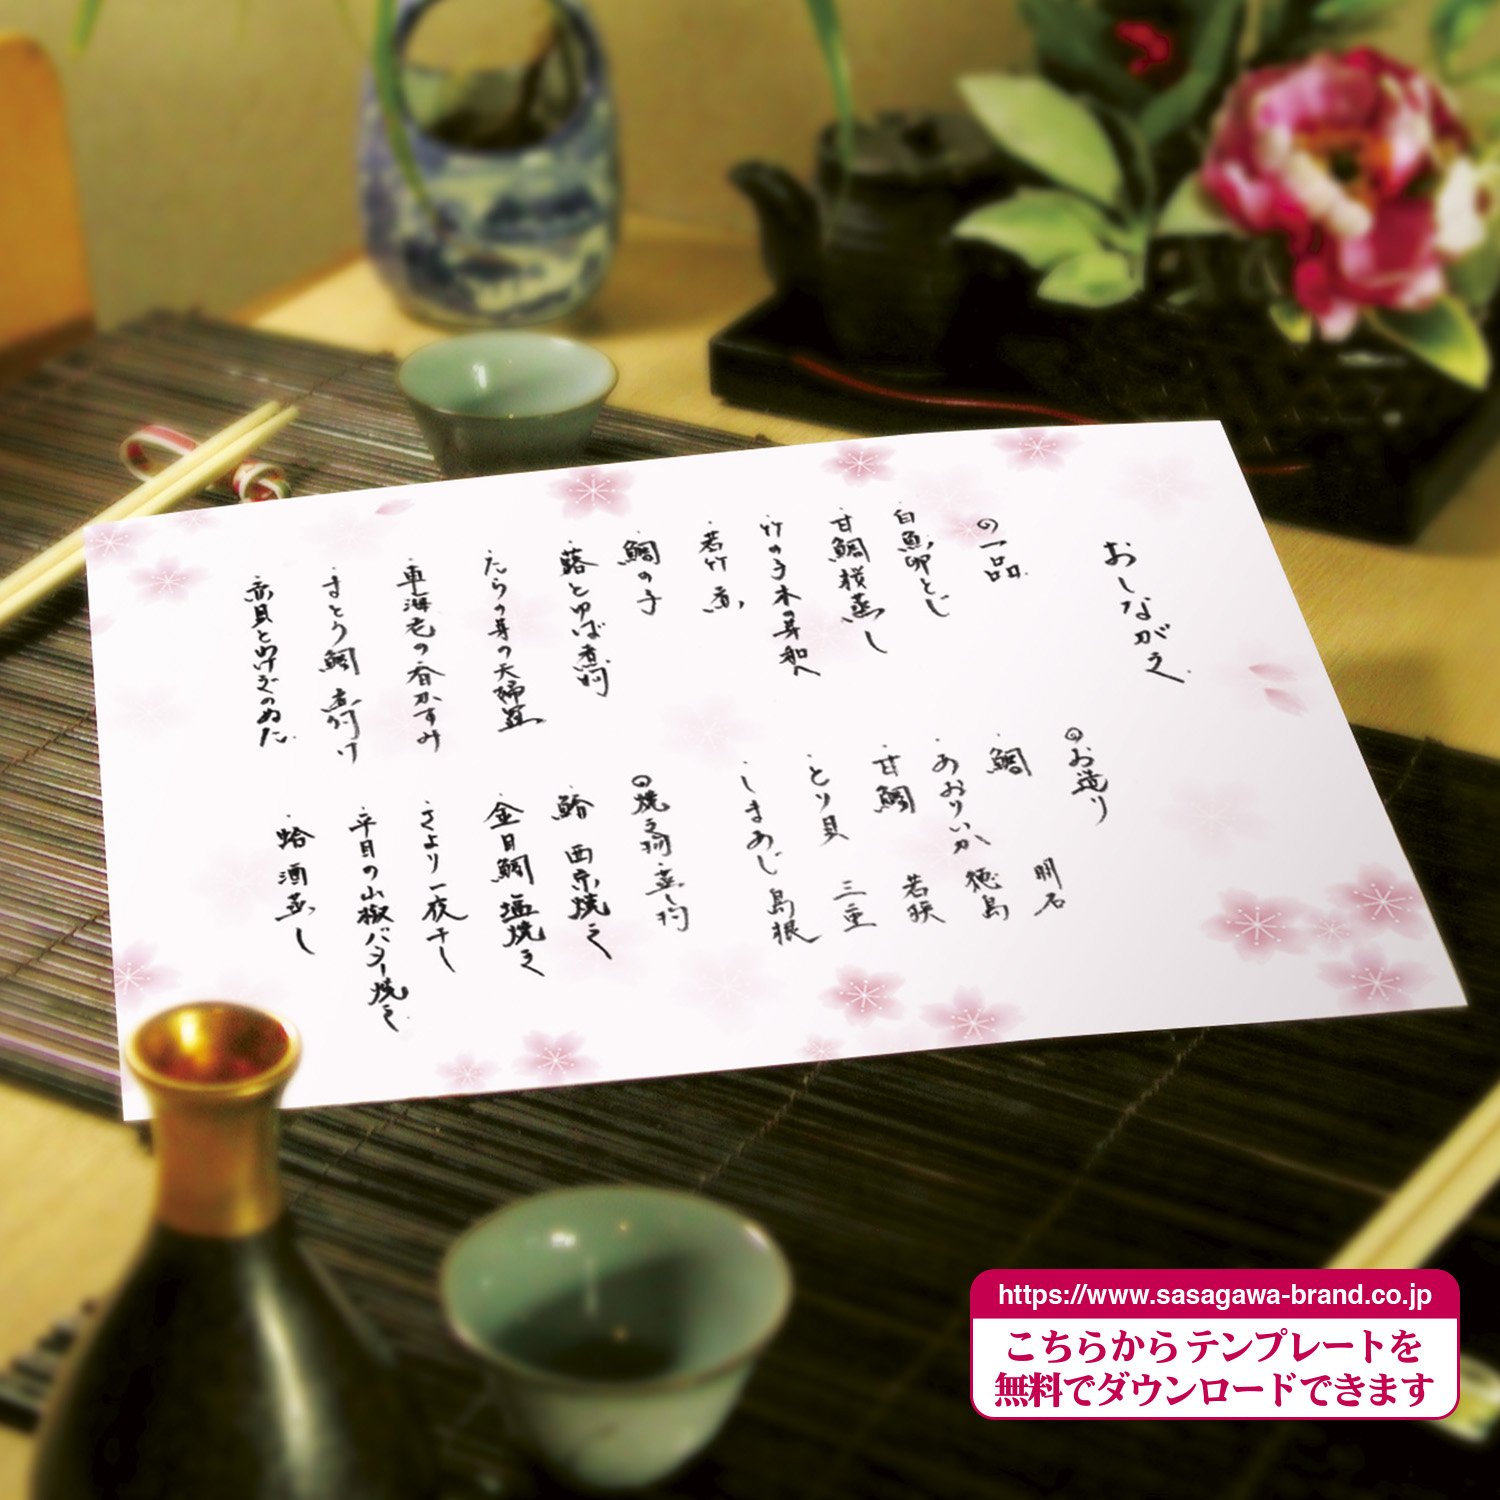 おしながき
◎一品
・白魚卵とじ
・甘鯛桜蒸し
・竹の子木の芽和へ
・若竹煮
・鯛の子
・蕗とゆば煮物
・たらの芽の天婦羅
・車海老の春かすみ
・まとう鯛煮付け
・赤貝とわけぎのぬた
◎お造り
・鯛 明石
・あおりいか 徳島
・甘鯛 若狭
・とり貝 三重
・しまあじ 島根
◎焼き物・蒸し物
・鰆 西京焼き
・金目鯛 塩焼き
・さより一夜干し
・平目の山椒バター焼き
・蛤 酒蒸し
https://www.sasagawa-brand.co.jp
こちらからテンプレートを
無料でダウンロードできます